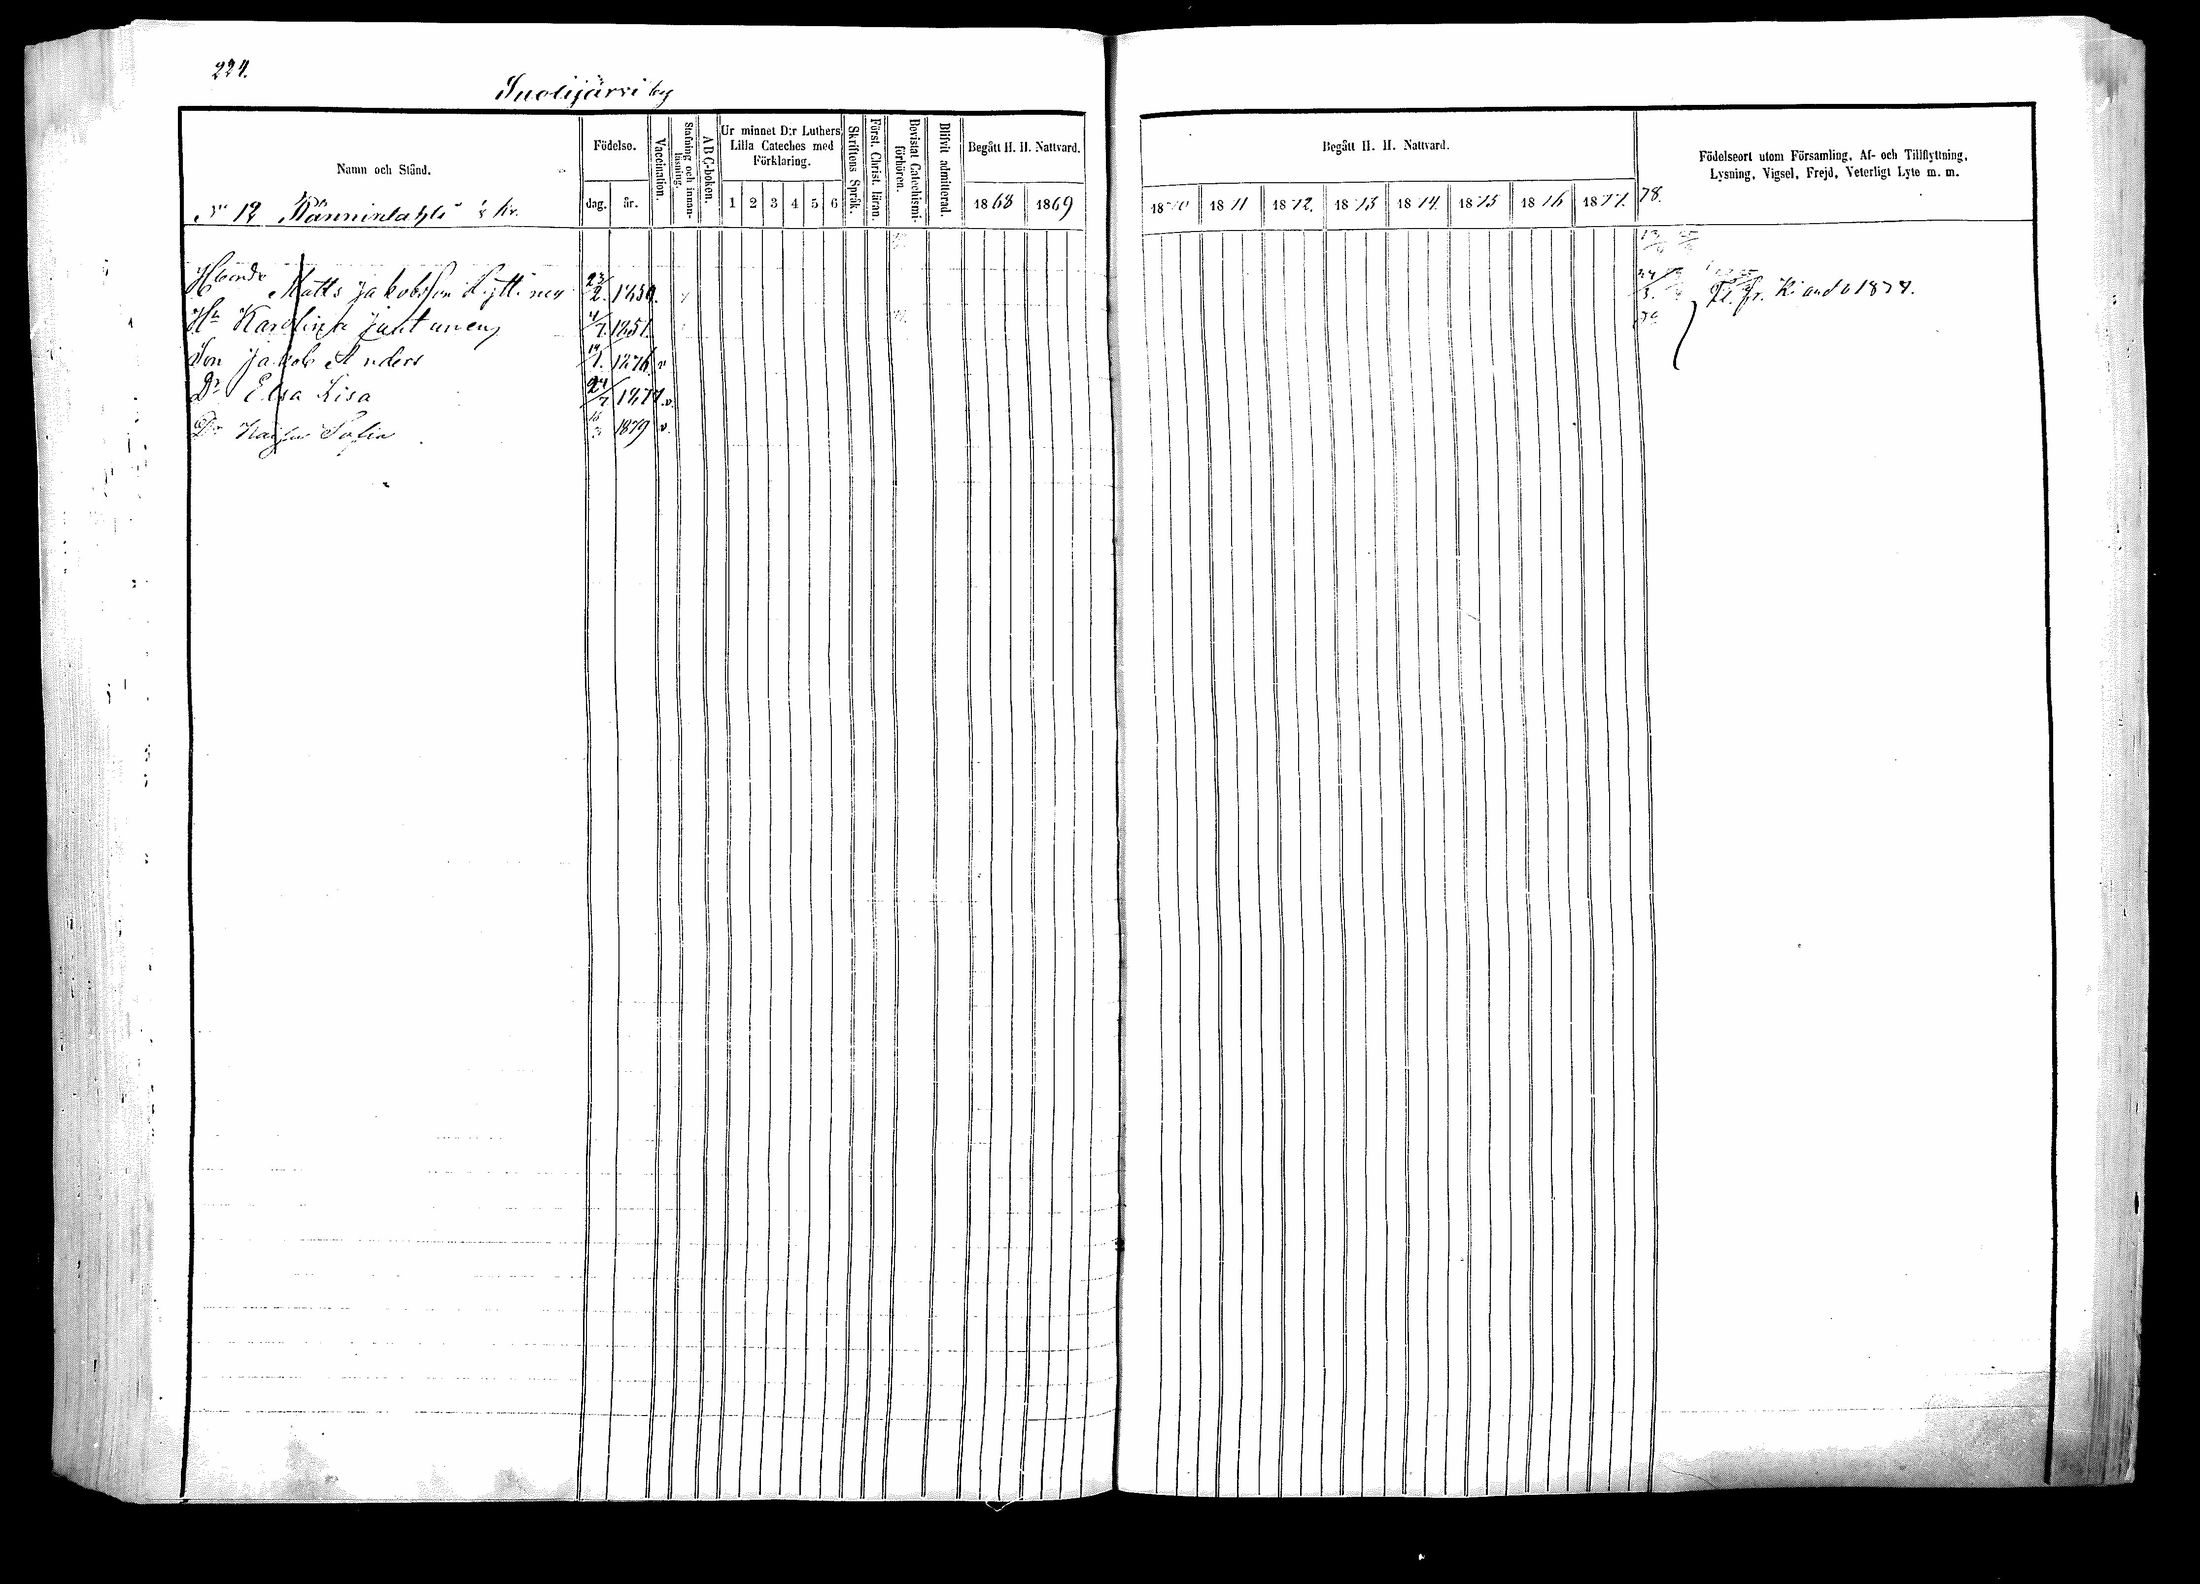 224.
Suolijärvi by
Namn och Stånd.
Födelse.
dag.
år.
Vaccination.
Stafning och innan-
läsning.
ABC-boken.
Ur minnet D:r Luthers
Lilla Cateches med
Förklaring.
1 2 3 4 5 6
Skriftens Språk.
Först. Christ. läran.
Bevistat Catechismi-
förhören.
Blifvit admitterad.
Begått H. H. Nattvard.
1868 1869
Begått H. H. Nattvard.
1870 1871 1872. 1873 1874. 1875 1876 1877. 78.
Födelseort utom Församling, Af- och Tillflyttning,
Lysning, Vigsel, Frejd, Veterligt Lyte m. m.
No 12
Matts Jakobsson Kyttinen 23/2. 1850. Fl. fr. Kiando 1878.
Hu Karolina Juntunen 4/7. 1851.
Son Jakob Anders 19/1. 1876. v
Dr Elsa Lisa 24/7 1877. v.
Dr Kaisa Sofia 1879 v.